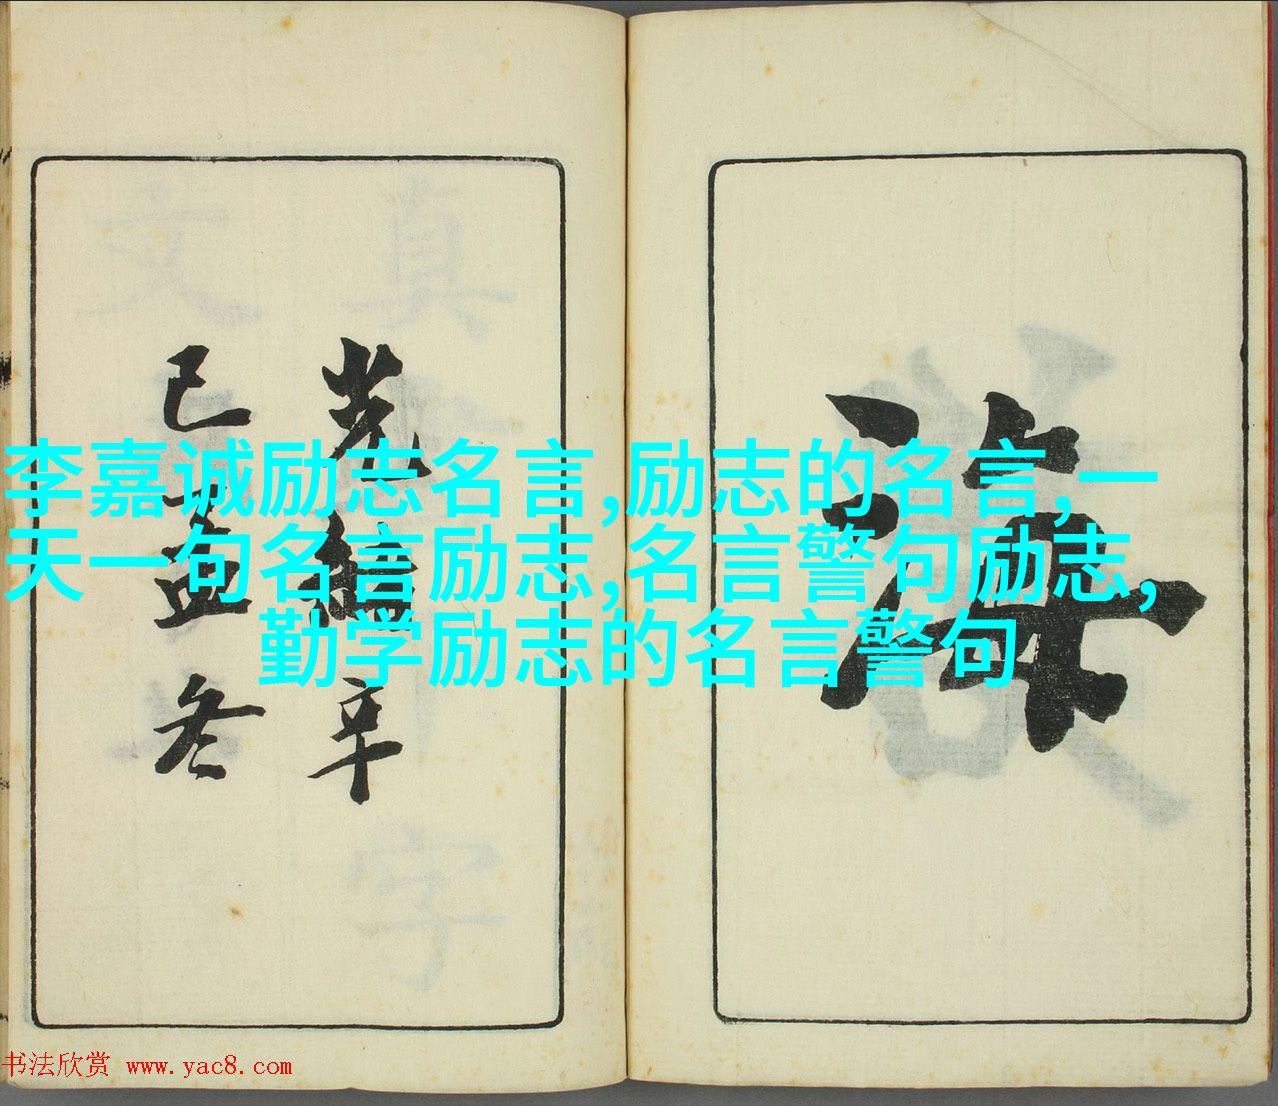 海
光緒辛
已孟冬
李嘉诚励志名言,励志的名言,一
天一句名言励志,名言警句励志,
勤学励志的名言警句
书法欣赏 www.yac8.com